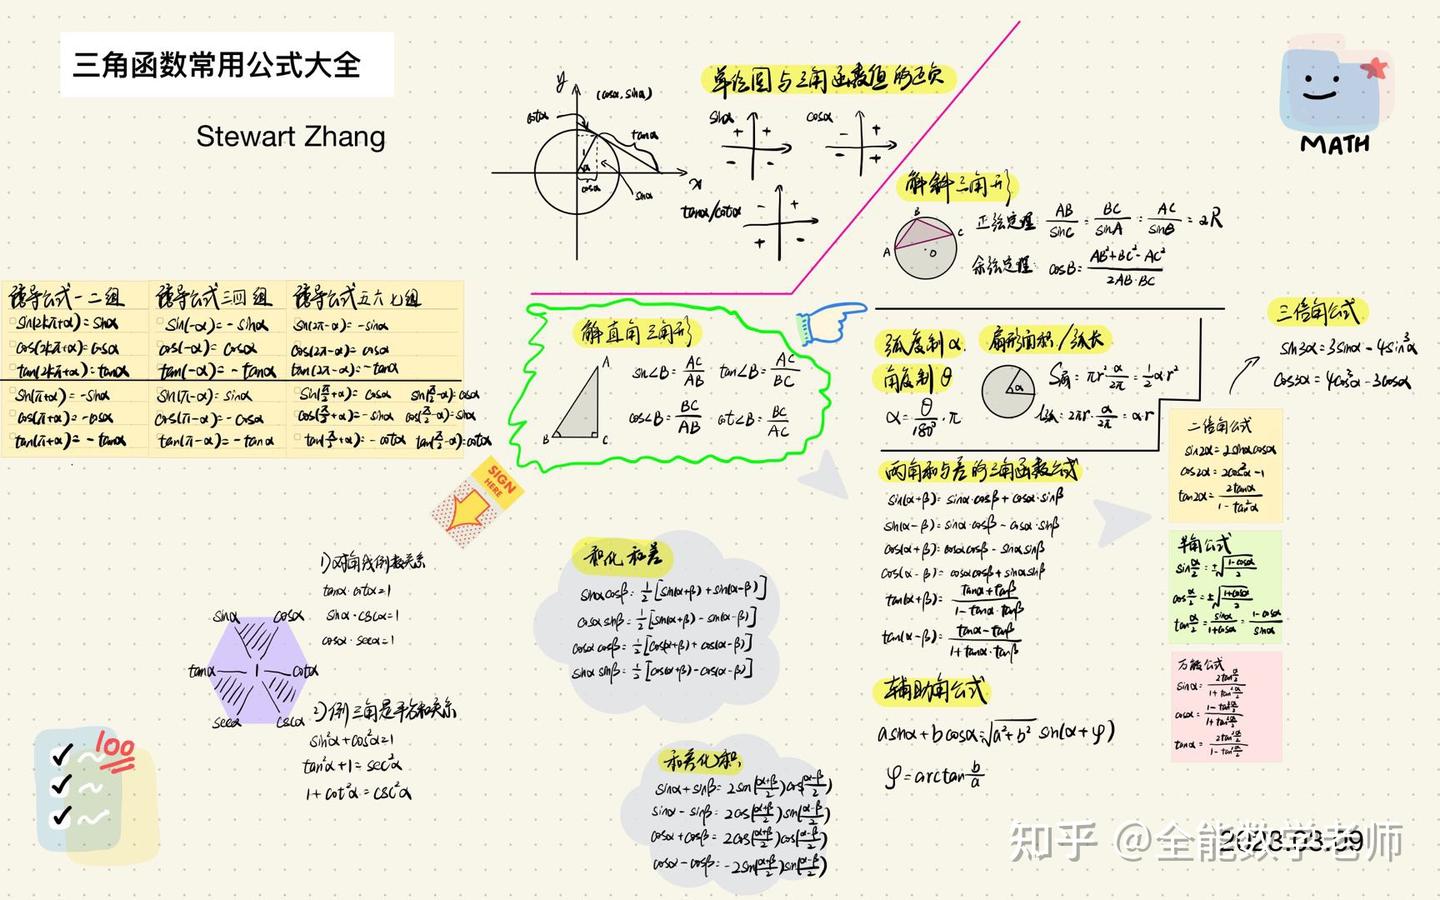 三角函数常用公式大全
Stewart Zhang
y
(cosα, sinα)
cotα
tanα
1
α
cosα
sinα
x
单位圆与三角函数值的正负
sinα
+ +
- -
cosα
- +
- +
tanα/cotα
- +
+ -
MATH
解斜三角形
A
B
C
O
正弦定理: AB/sinC = BC/sinA = AC/sinB = 2R
余弦定理: cosB = AB²+BC²-AC²/2AB·BC
诱导公式一二组
sin(2kπ+α)=sinα
cos(2kπ+α)=cosα
tan(2kπ+α)=tanα
sin(π+α)=-sinα
cos(π+α)=-cosα
tan(π+α)=-tanα
诱导公式三四组
sin(-α)=-sinα
cos(-α)=cosα
tan(-α)=-tanα
sin(π-α)=sinα
cos(π-α)=-cosα
tan(π-α)=-tanα
诱导公式五六七组
sin(2π-α)=-sinα
cos(2π-α)=cosα
tan(2π-α)=-tanα
sin(π/2+α)=cosα sin(π/2-α)=cosα
cos(π/2+α)=-sinα cos(π/2-α)=sinα
tan(π/2+α)=-cotα tan(π/2-α)=cotα
解直角三角形
A
B
C
sin∠B=AC/AB tan∠B=AC/BC
cos∠B=BC/AB cot∠B=BC/AC
弧度制α
角度制θ
α=θ/180°·π
扇形面积/弧长
α
S扇=πr²·α/2π=1/2α·r²
l弧=2πr·α/2π=α·r
三倍角公式
sin3α=3sinα-4sin³α
cos3α=4cos³α-3cosα
两角和与差的三角函数公式
sin(α+β)=sinα·cosβ+cosα·sinβ
sin(α-β)=sinα·cosβ-cosα·sinβ
cos(α+β)=cosαcosβ-sinαsinβ
cos(α-β)=cosαcosβ+sinαsinβ
tan(α+β)=tanα+tanβ/1-tanα·tanβ
tan(α-β)=tanα-tanβ/1+tanα·tanβ
二倍角公式
sin2α=2sinαcosα
cos2α=2cos²α-1
tan2α=2tanα/1-tan²α
半角公式
sinα/2=±√1-cosα/2
cosα/2=±√1+cosα/2
tanα/2=sinα/1+cosα=1-cosα/sinα
万能公式
sinα=2tanα/2/1+tan²α/2
cosα=1-tan²α/2/1+tan²α/2
tanα=2tanα/2/1-tan²α/2
SIGN
HERE
1)对角线倒数关系
tanα·cotα=1
sinα·cscα=1
cosα·secα=1
sinα
cosα
tanα
1
cotα
secα
cscα
2)倒三角是平方和关系
sin²α+cos²α=1
tan²α+1=sec²α
1+cot²α=csc²α
100
积化和差
sinαcosβ=1/2[sin(α+β)+sin(α-β)]
cosαsinβ=1/2[sin(α+β)-sin(α-β)]
cosαcosβ=1/2[cos(α+β)+cos(α-β)]
sinαsinβ=1/2[cos(α+β)-cos(α-β)]
和差化积
sinα+sinβ=2sin(α+β/2)cos(α-β/2)
sinα-sinβ=2cos(α+β/2)sin(α-β/2)
cosα+cosβ=2cos(α+β/2)cos(α-β/2)
cosα-cosβ=-2sin(α+β/2)sin(α-β/2)
辅助角公式
asinα+bcosα=√a²+b² sin(α+φ)
φ=arctan b/a
2023.03.09
知乎 @全能数学老师